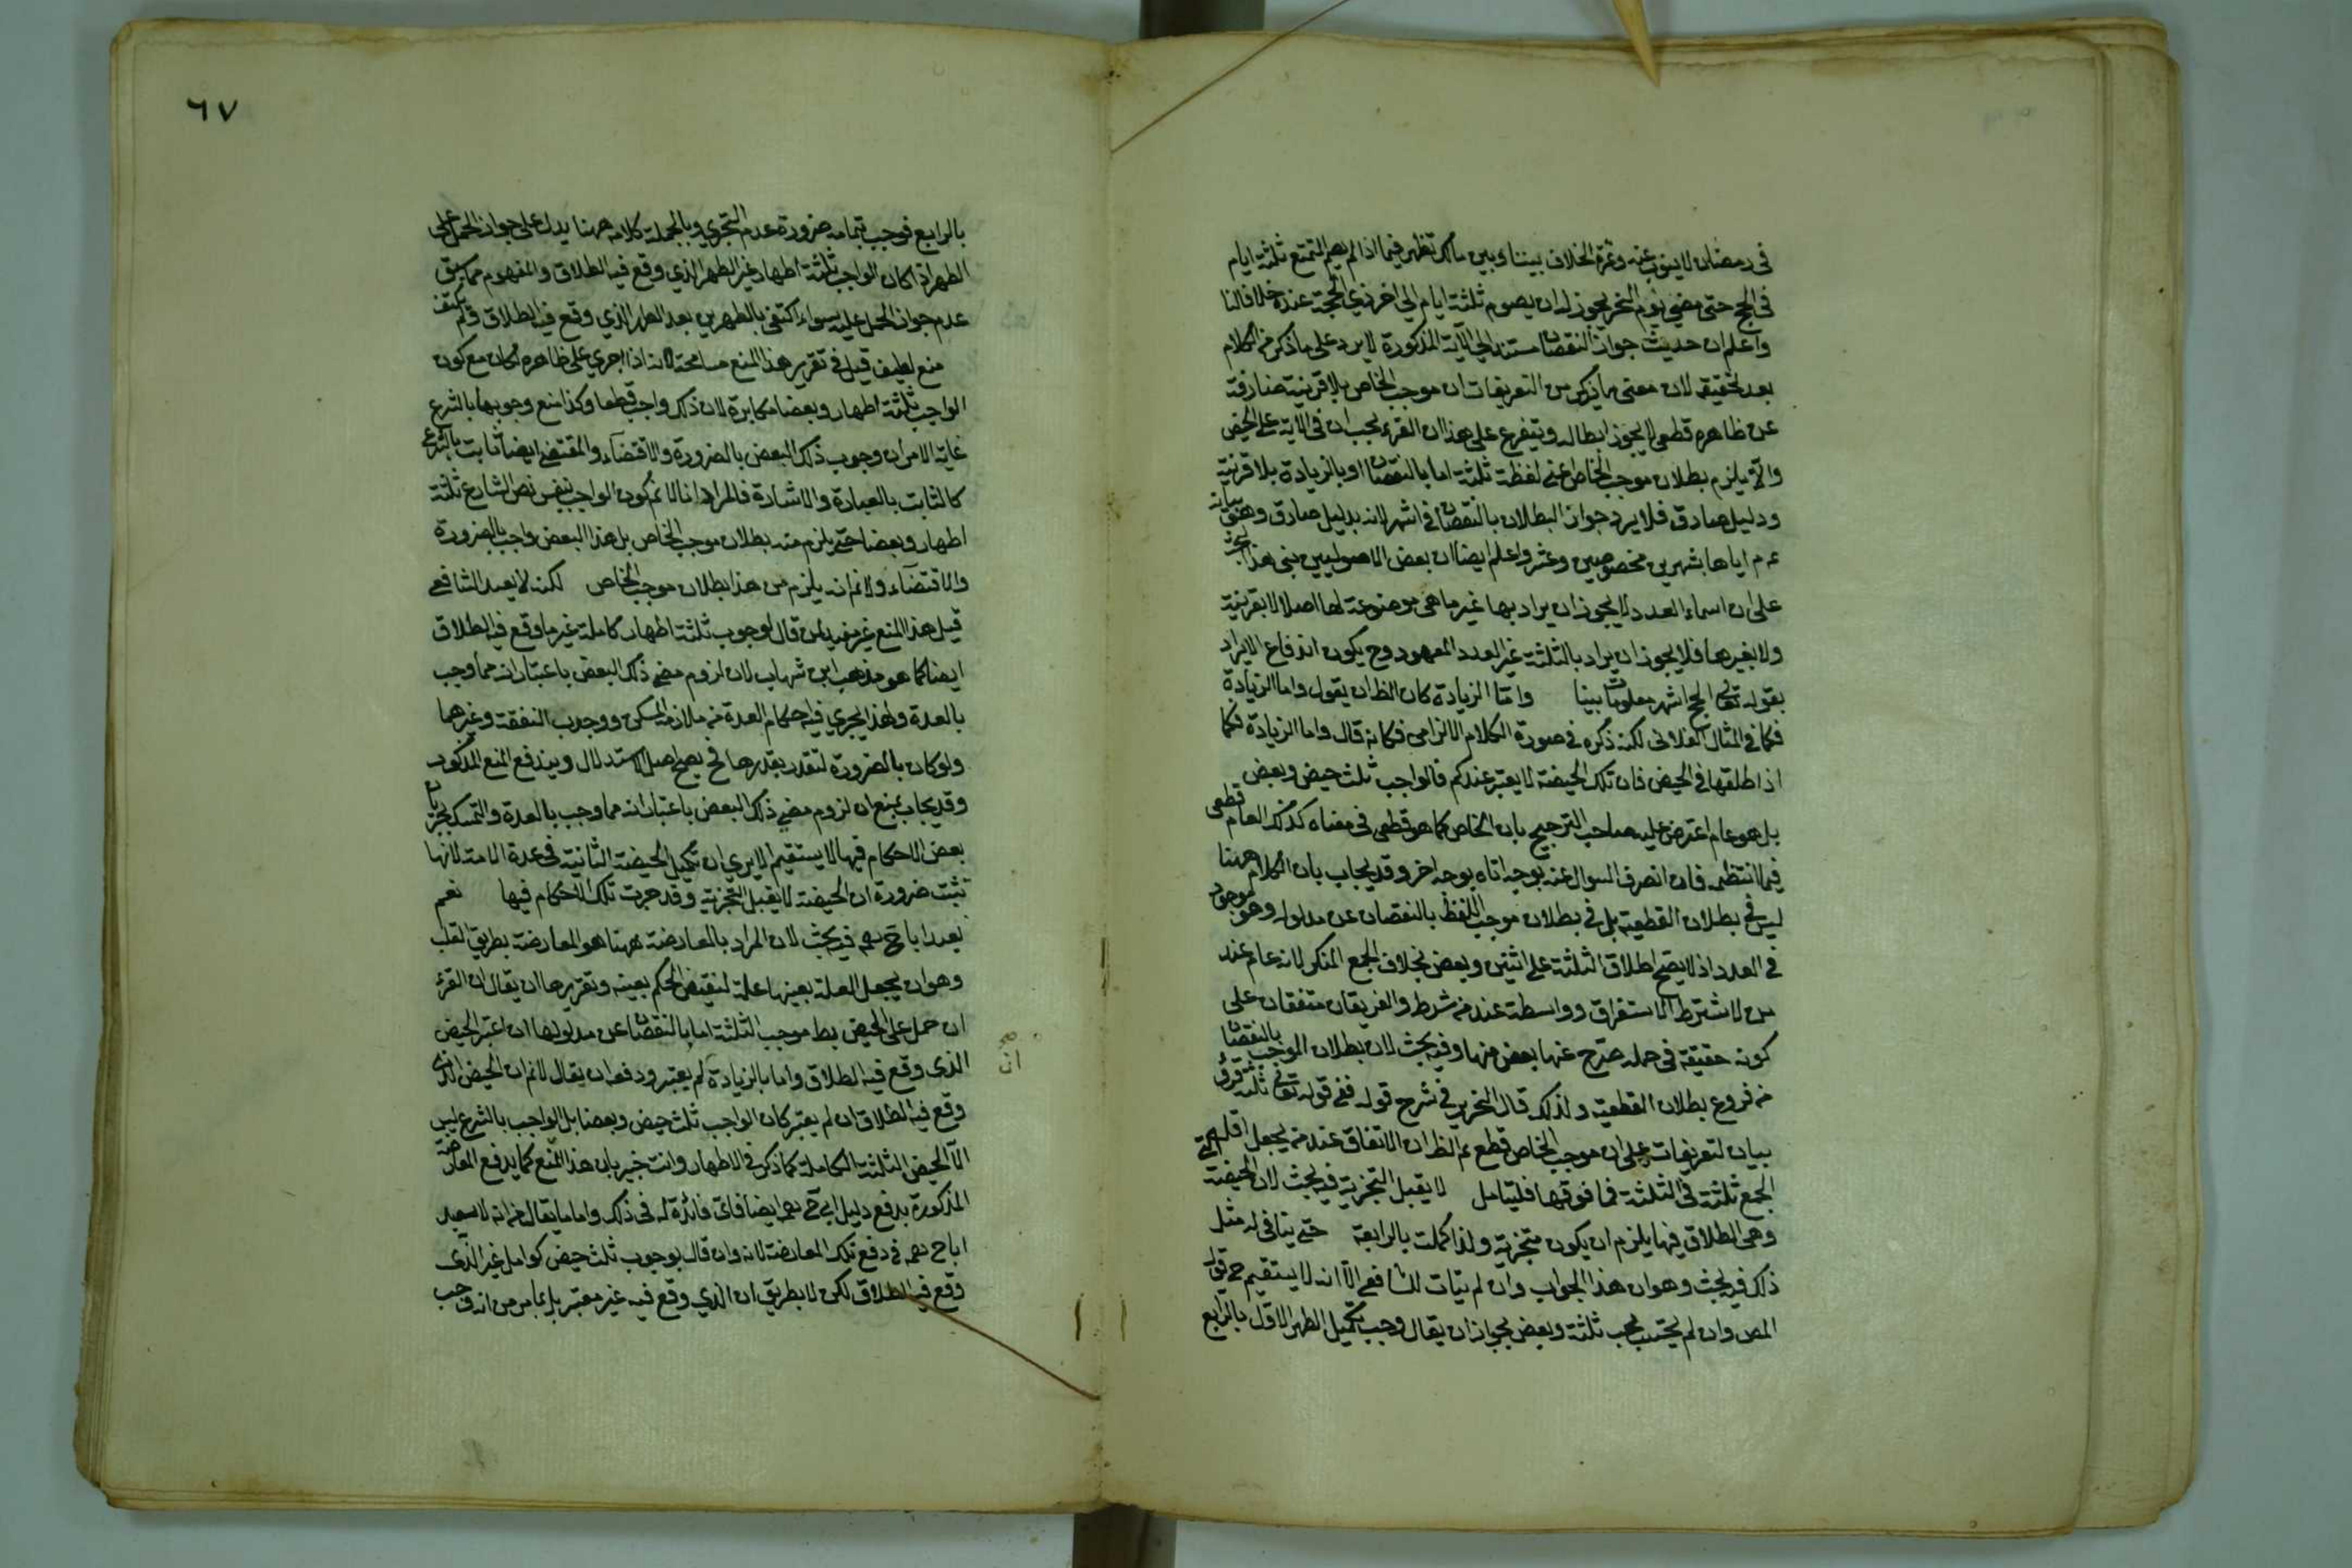 في رمضان لا ينوب عنه وثمرة الخلاف بيننا وبين مالك تظهر فيما اذا لم يصم المتمتع ثلثة ايام
في الحج حتى مضى يوم النحر يجوز له ان يصوم ثلثة ايام الى اخر ذي الحجة عنده خلافا لنا
واعلم ان حديث جواز النقصان مستندا الى الآية المذكورة لا يرد على ما ذكر من الكلام
بعد تحقيقه لان معنى ما يذكر من التعريفات ان موجب الخاص بلا قرينة صارفة
عن ظاهره قطعي لا يجوز ابطاله ويتفرع على هذا ان القرء يجب ان في الاية على الحيض
والا يلزم بطلان موجب الخاص اعني لفظة ثلثة اما بالنقصان او بالزيادة بلا قرينة
ودليل صادق فلا يرد جواز البطلان بالنقصان في اشهر لانه بدليل صادق وهو بيانه
عم اياها بشهرين مخصوصين وعشر واعلم ايضا ان بعض الاصوليين بنى هذا البحث
على ان اسماء العدد لا يجوز ان يراد بها غير ما هي موضوعة لها اصلا لا بقرينة
ولا بغيرها فلا يجوز ان يراد بالثلثة غير العدد المعهود وح يكون اندفاع الايراد
بقوله تعالى الحج اشهر معلومات بينا واما الزيادة كان الظ ان يقول واما الزيادة
فكما في المثال الفلاني لكنه ذكره في صورة الكلام الالزامي فكانه قال واما الزيادة فكما
اذا طلقها في الحيض فان تلك الحيضة لا يعتبر عندكم فالواجب ثلث حيض وبعض
بل هو عام اعترض عليه صاحب الترجيح بان الخاص كما هو قطعي في معناه كذلك العام قطعي
فيما انتظمه فان انصرف السوال عنه بوجه اتاه بوجه اخر وقد يجاب بان الكلام ههنا
ليس في بطلان القطعية بل في بطلان موجب اللفظ بالنقصان عن مدلوله وهو موجود
في العدد اذ لا يصح اطلاق الثلثة على اثنين وبعض بخلاف الجمع المنكر لانه عام عند
من لا يشترط الاستغراق وواسطة عند من شرط والفريقان متفقان على
كونه حقيقة في حمله صرح عنها بعض منها وفيه بحث لان بطلان الموجب بالنقصان
من فروع بطلان القطعية ولذلك قال النحرير في شرح قوله ففي قوله تعالى ثلثة قروء
بيان لتعريفات على ان موجب الخاص قطع ثم الظ ان الاتفاق عند من يجعل اقل
الجمع ثلثة في الثلثة فما فوقها فليتامل لا يقبل التجزية فيه بحث لان الحيضة التي
وهى الطلاق فيها يلزم ان يكون متجزية ولذا كملت بالرابعة حتى ينافى له مثل
ذلك فيه بحث وهو ان هذا الجواب وان لم يتات للشافعي الا انه لا يستقيم ح قول
المص وان لم يحتسب يجب ثلثة وبعض لجواز ان يقال وجب تكميل الطهر الاول بالرابع
٦٧
بالرابع فوجب بتمامه ضرورة عدم التجزي وبالجملة كلامه ههنا يدل على جواز الحمل على
الطهر اذا كان الواجب ثلثة اطهار غير الطهر الذي وقع فيه الطلاق والمفهوم مما سبق
عدم جواز الحمل عليه سواء اكتفى بالطهرين بعد الطهر الذي وقع فيه الطلاق ولم يكتف
منع لطيف قيل في تقرير هذا المنع مسامحة لانه اذا اجري على ظاهره لكان مع كون
الواجب ثلثة اطهار وبعضا مكابرة لان ذلك واجب قطعا وكذا منع وجوبها بالشرع
غاية الامر ان وجوب ذلك البعض بالضرورة والاقتضاء والمقتضى ايضا ثابت بالشرع
كالثابت بالعبارة والاشارة فالمراد انا لا نم كون الواجب بنفس نص الشارع ثلثة
اطهار وبعضا حتى يلزم منه بطلان موجب الخاص بل هذا البعض واجب بالضرورة
والاقتضاء ولا نم انه يلزم من هذا بطلان موجب الخاص لكنه لا يفيد الشافعي
قيل هذا المنع غير مفيد لمن قال لوجوب ثلثة اطهار كاملة غير ما وقع فيه الطلاق
ايضا كما هو مذهب ابن شهاب لان لزوم مضي ذلك البعض باعتبار انه مما وجب
بالعدة ولهذا يجري فيه احكام العدة من ملازمة المسكن ووجوب النفقة وغيرهما
ولو كان بالضرورة لتقدر بقدرها فح يصح اصل الاستدلال ويندفع المنع المذكور
وقد يجاب بمنع ان لزوم مضي ذلك البعض باعتبار انه مما وجب بالعدة والتمسك بجريان
بعض الاحكام فيها لا يستقيم الا يرى ان تكميل الحيضة الثانية في عدة الامة لانها
تثبت ضرورة ان الحيضة لا يقبل التجزية وقد جرت تلك الاحكام فيها نعم
يفيد ابا ح فيه بحث لان المراد بالمعارضة ههنا هو المعارضة بطريق القلب
وهو ان يجعل العلة بعينها علة لنقيض الحكم بعينه وتقريرها ان يقال ان القرء
ان حمل على الحيض بطل موجب الثلثة اما بالنقصان عن مدلولها ان اعتبر الحيض
الذي وقع فيه الطلاق واما بالزيادة لم يعتبر ودفعه ان يقال لا نم ان الحيض الذي
صح
ان
وقع فيه الطلاق ان لم يعتبر كان الواجب ثلث حيض وبعضا بل الواجب بالشرع ليس
الا الحيض الثلثة الكاملة كما ذكر في الاطهار وانت خبير بان هذا المنع كما يدفع المعارضة
المذكورة يدفع دليل ابي ح ايضا فاي فائدة له في ذلك واما ما يقال من انه لا يفيد
ابا ح في دفع تلك المعارضة لانه وان قال بوجوب ثلث حيض كوامل غير الذي
وقع فيه الطلاق لكن لا بطريق ان الذي وقع فيه غير معتبر بل بما مر من انه وجب